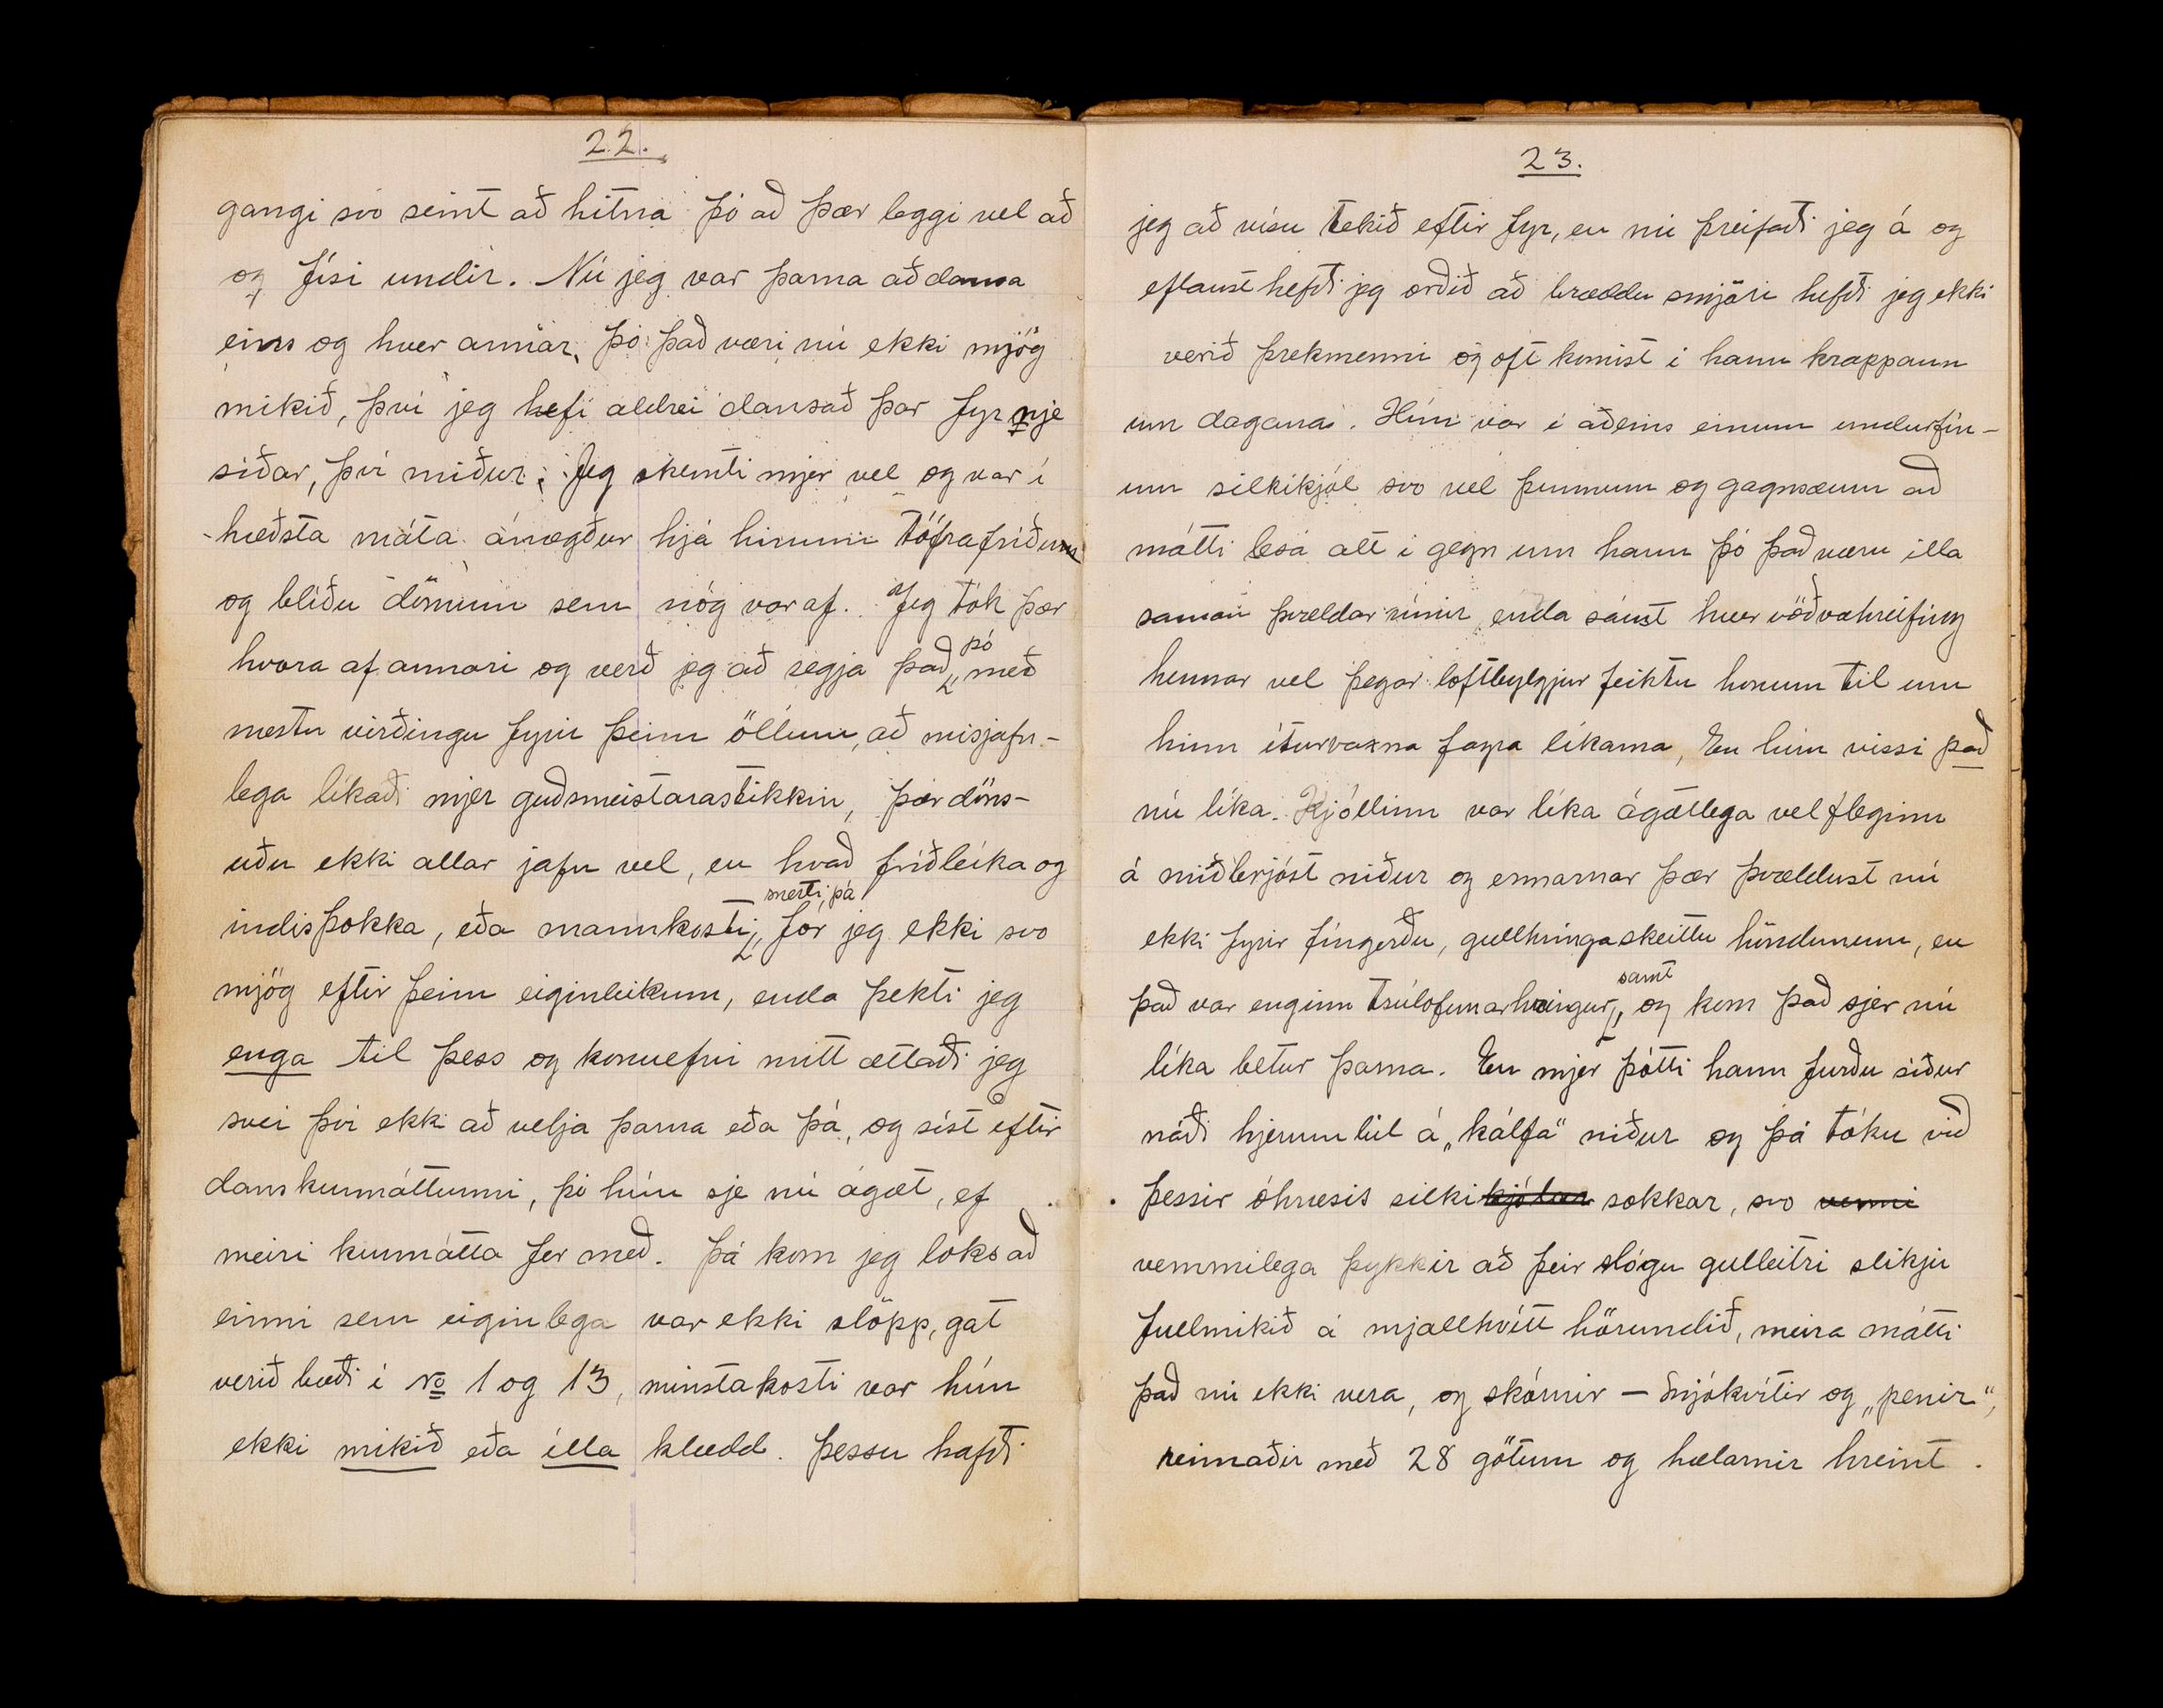 22.
gangi svo seint að hitna þó að þær leggi vel að
og físi undir. Nú jeg var þarna að dansa
eins og hver annar, þó það væri nú ekki mjög
mikið, því jeg hefi aldrei dansað þar fyr nje
síðar, því miður. Jeg skemti mjer vel og var í
hæðsta máta ánægður hjá hinum töfrafríðum
og blíðu dömum sem nóg var af. Jeg tók þær
hvora af annari og verð jeg að segja það, þó með
mestu virðingu fyrir þeim öllum, að misjafn-
lega líkaði mjer guðsmeistarastikkin, þær döns-
uðu ekki allar jafn vel, en hvað fríðleika og
indisþokka, eða mannkosti, snerti, þá fór jeg ekki svo
mjög eftir þeim eiginleikum, enda þekti jeg
enga til þess og konuefni mitt ætlaði jeg
svei því ekki að velja þarna eða þá, og síst eftir
danskunnáttunni, þó hún sje nú ágæt, ef
meiri kunnátta fer með. Þá kom jeg loks að
einni sem eiginlega var ekki slöpp, gat
verið bæði í No 1 og 13, minstakosti var hún
ekki mikið eða illa klædd. Þessu hafði
23.
jeg að vísu tekið eftir fyr, en nú þreifaði jeg á og
eflaust hefði jeg orðið að bræddu smjöri hefði jeg ekki
verið þrekmenni og oft komist í hann krappann
um dagana. Hún var í aðeins einum undurfín-
um silkikjól svo vel þunnum og gagnsæum að
mátti lesa alt í gegn um hann þó það væru illa
saman þvældar rúnir, enda sáust hver vöðvahreifing
hennar vel þegar loftbylgjur feiktu honum til um
hinn íturvaxna fagra líkama, En hún vissi það
nú líka. Kjóllinn var líka ágætlega vel fleginn
á miðbrjóst niður og ermarnar þær þvældust nú
ekki fyrir fíngerðu, gullhringaskeittu höndunum, en
það var enginn trúlofunarhringur, samt og kom það sjer nú
líka betur þarna. En mjer þótti hann furðu síður
náði hjerumbil á „kálfa" niður og þá tóku við
þessir óhræsis silkikjólar sokkar, svo vemmi
vemmilega þykkir að þeir slógu gulleitri slikju
fullmikið á mjallhvítt hörundið, meira mátti
það nú ekki vera, og skórnir – Snjókvítir og „penir",
reimaðir með 28 götum og hælarnir hreint